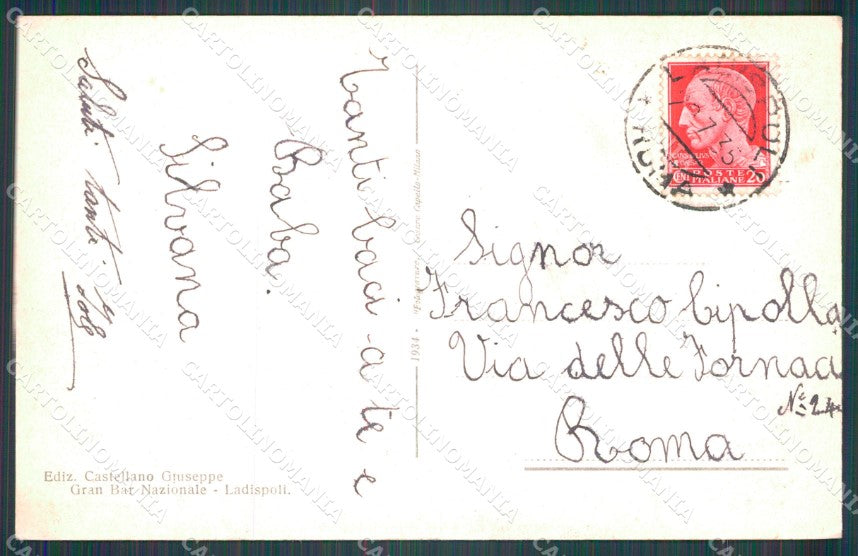 Saluti tanti
Tanti baci a te e
Baba.
Silvana
Ediz. Castellano Giuseppe
Gran Bar Nazionale - Ladispoli.
1934 -
LADISPOLI
* ROMA *
7.35
POSTE
ITALIANE
CENT 20
Signor
Francesco Cipolla
Via delle Fornac
N= 24
Roma
CARTOLINOMANIA